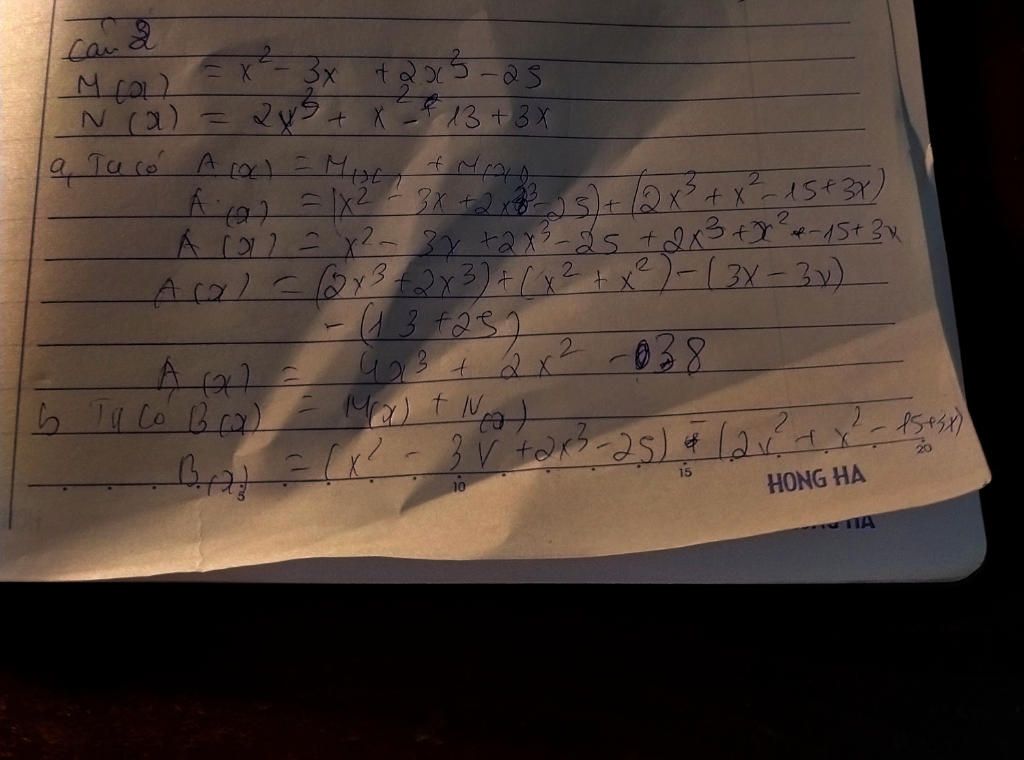 Câu 2
M(x) = x² - 3x + 2x³ - 25
N(x) = 2x³ + x² - 13 + 3x
a, Ta có A(x) = M(x) + N(x)
A(x) = (x² - 3x + 2x³ - 25) + (2x³ + x² - 15 + 3x)
A(x) = x² - 3x + 2x³ - 25 + 2x³ + x² - 15 + 3x
A(x) = (2x³ + 2x³) + (x² + x²) - (3x - 3x)
- (13 + 25)
A(x) = 4x³ + 2x² - 38
b Ta có B(x) = M(x) + N(x)
B(x) = (x² - 3x + 2x³ - 25) - (2x² + x² - 15 + 3x)
5 10 15 20
HONG HA